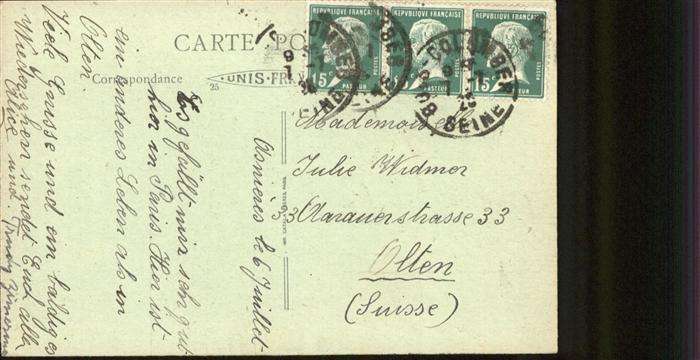 CARTE PO
Correspondance
25
UNIS-FR
REPVBLIQVE FRANÇAISE
15c
POSTES
PASTEUR
REPVBLIQVE FRANÇAISE
POSTES
PASTEUR
REPVBLIQVE FRANÇAISE
15c
POSTES
COLOMBES
SEINE
Asnières le 6 Juillet
Es gefällt mir sehr gut
hier in Paris. Hier ist
ein anderes Leben als in
Olten.
Viele Grüsse und ein baldiges
Wiedersehen sendet Euch alle
Alice und
Mademoiselle
Julie Widmer
33 Aarauerstrasse 33
Olten
(Suisse)